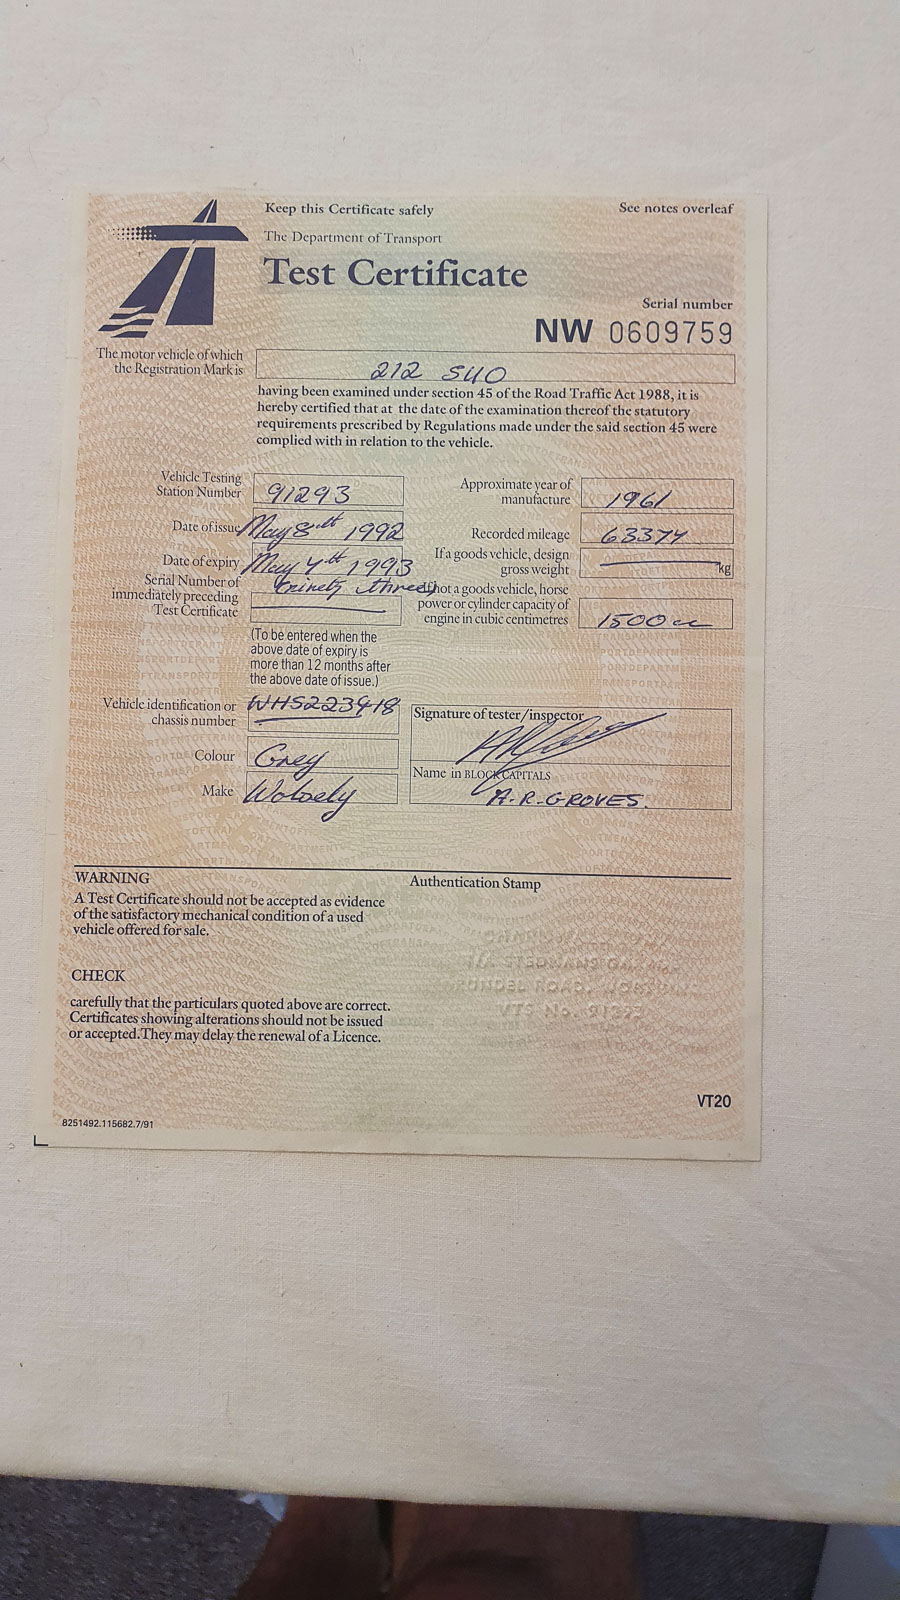 Keep this Certificate safely
See notes overleaf
The Department of Transport
Test Certificate
Serial number
NW 0609759
The motor vehicle of which
the Registration Mark is
212 SUO
having been examined under section 45 of the Road Traffic Act 1988, it is
hereby certified that at the date of the examination thereof the statutory
requirements prescribed by Regulations made under the said section 45 were
complied with in relation to the vehicle.
Vehicle Testing
Station Number
91293
Approximate year of
manufacture
1961
Date of issue
May 8th 1992
Recorded mileage
63374
Date of expiry
May 7th 1993
(ninety three)
If a goods vehicle, design
gross weight
kg
Serial Number of
immediately preceding
Test Certificate
If not a goods vehicle, horse
power or cylinder capacity of
engine in cubic centimetres
1500cc
(To be entered when the
above date of expiry is
more than 12 months after
the above date of issue.)
Vehicle identification or
chassis number
WHS223918
Signature of tester/inspector
Colour
Grey
Name in BLOCK CAPITALS
A.R.GROVES.
Make
Wolsely
WARNING
A Test Certificate should not be accepted as evidence
of the satisfactory mechanical condition of a used
vehicle offered for sale.
Authentication Stamp
CHECK
carefully that the particulars quoted above are correct.
Certificates showing alterations should not be issued
or accepted. They may delay the renewal of a Licence.
ROAD,
VTS No. 91293
VT20
8251492.115682.7/91